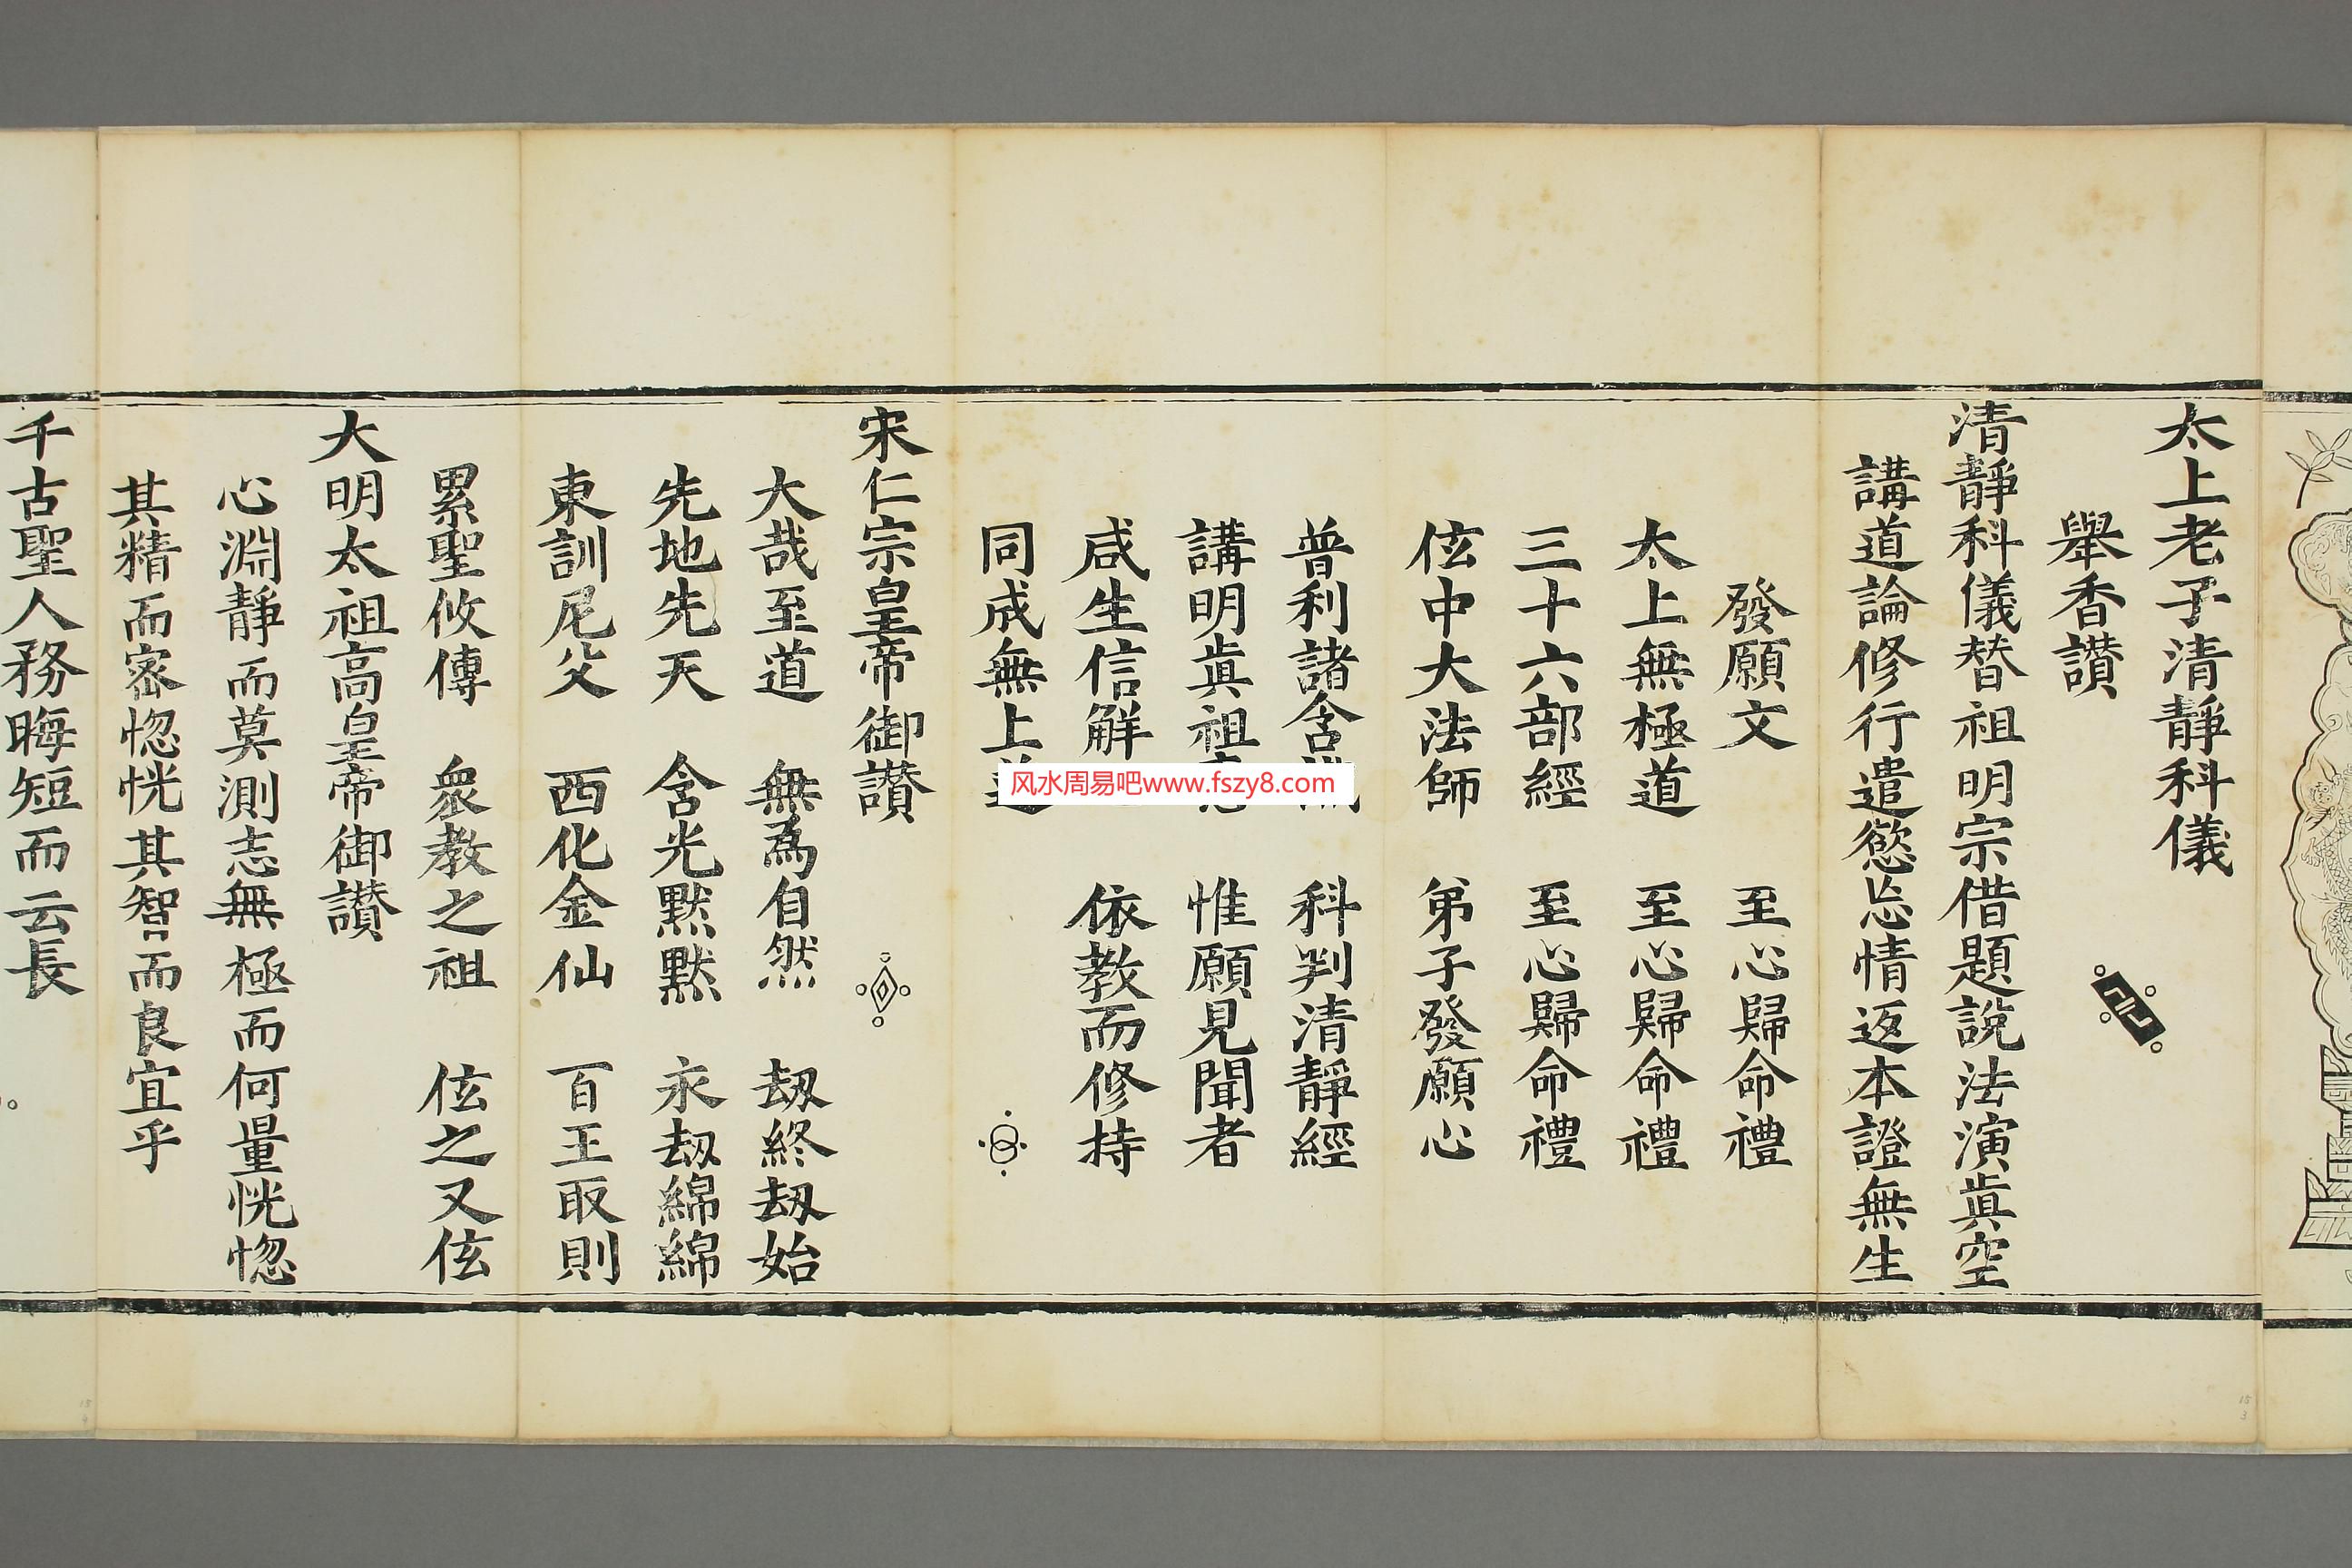 太上老子清靜科儀
舉香讃
清靜科儀替祖明宗借題說法演眞空
講道論修行遣慾忘情返本證無生
發願文 至心歸命禮
太上無極道 至心歸命禮
三十六部經 至心歸命禮
伭中大法師 弟子發願心
普利諸含 科判清靜經
講明眞祖 惟願見聞者
咸生信解 依教而修持
同成無上
宋仁宗皇帝御讃
大哉至道 無為自然 刼終刼始
先地先天 含光黙黙 永刼綿綿
東訓尼父 西化金仙 百王取則
累聖攸傳 衆教之祖 伭之又伭
大明太祖高皇帝御讃
心淵靜而莫測志無極而何量恍惚
其精而密惚恍其智而良宜乎
千古聖人務晦短而云長
风水周易吧www.fszy8.com